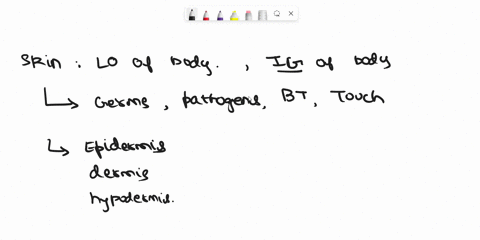 Skin : LO of body. , IG of body
Germs, pathogens, BT, Touch
Epidermis
dermis
hypodermis.